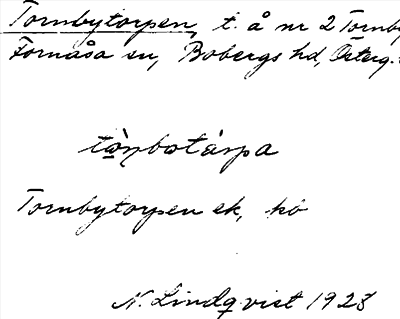 Tornbytorpen, t. å nr 2 Tornby
Fornåsa sn, Bobergs hd, Österg.
tò̀ṇbotárpa
Tornbytorpen ek, kö
N. Lindqvist 1928